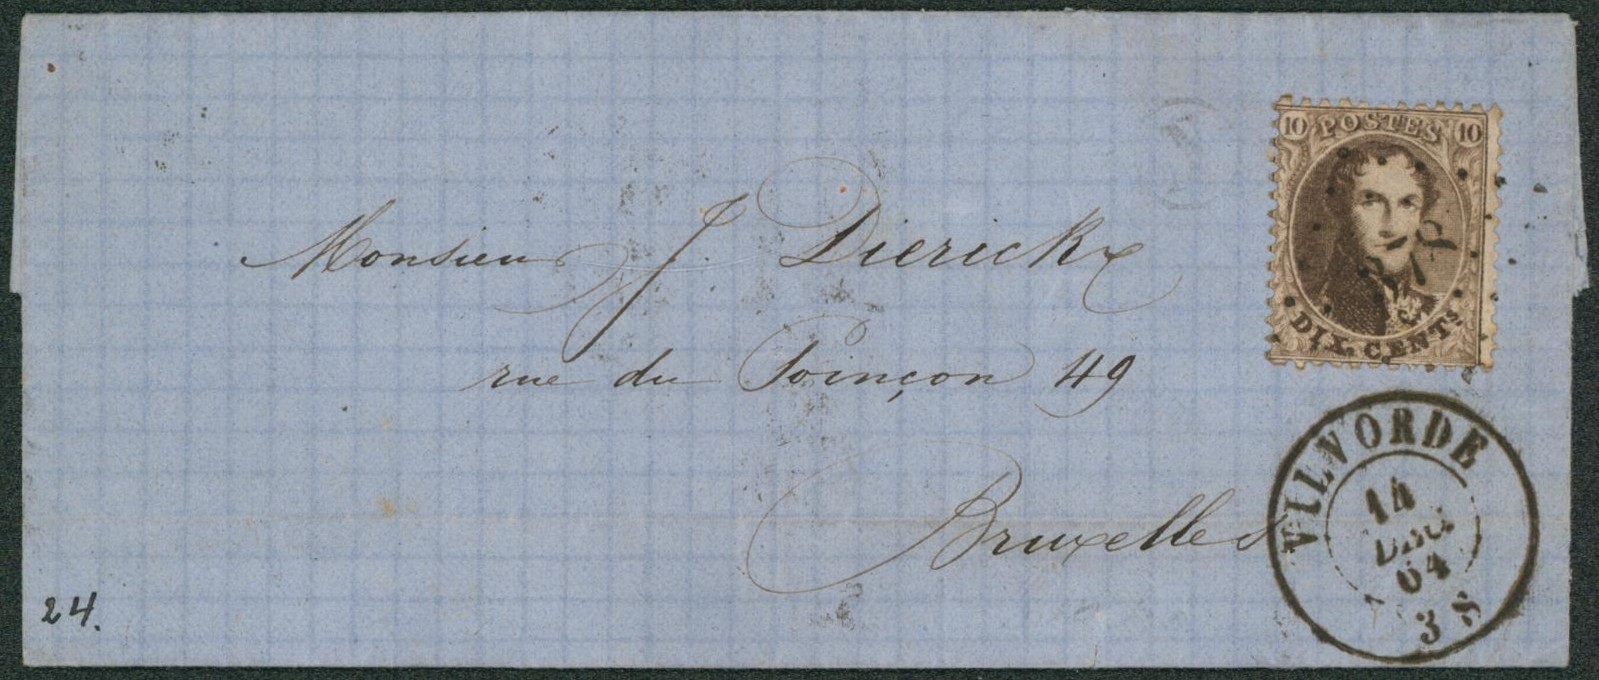 10 POSTES 10
DIX CENTS
Monsieur J. Dierickx
rue du Poinçon 49
Bruxelles
VILVORDE
14
DECI
64
3 S
24.